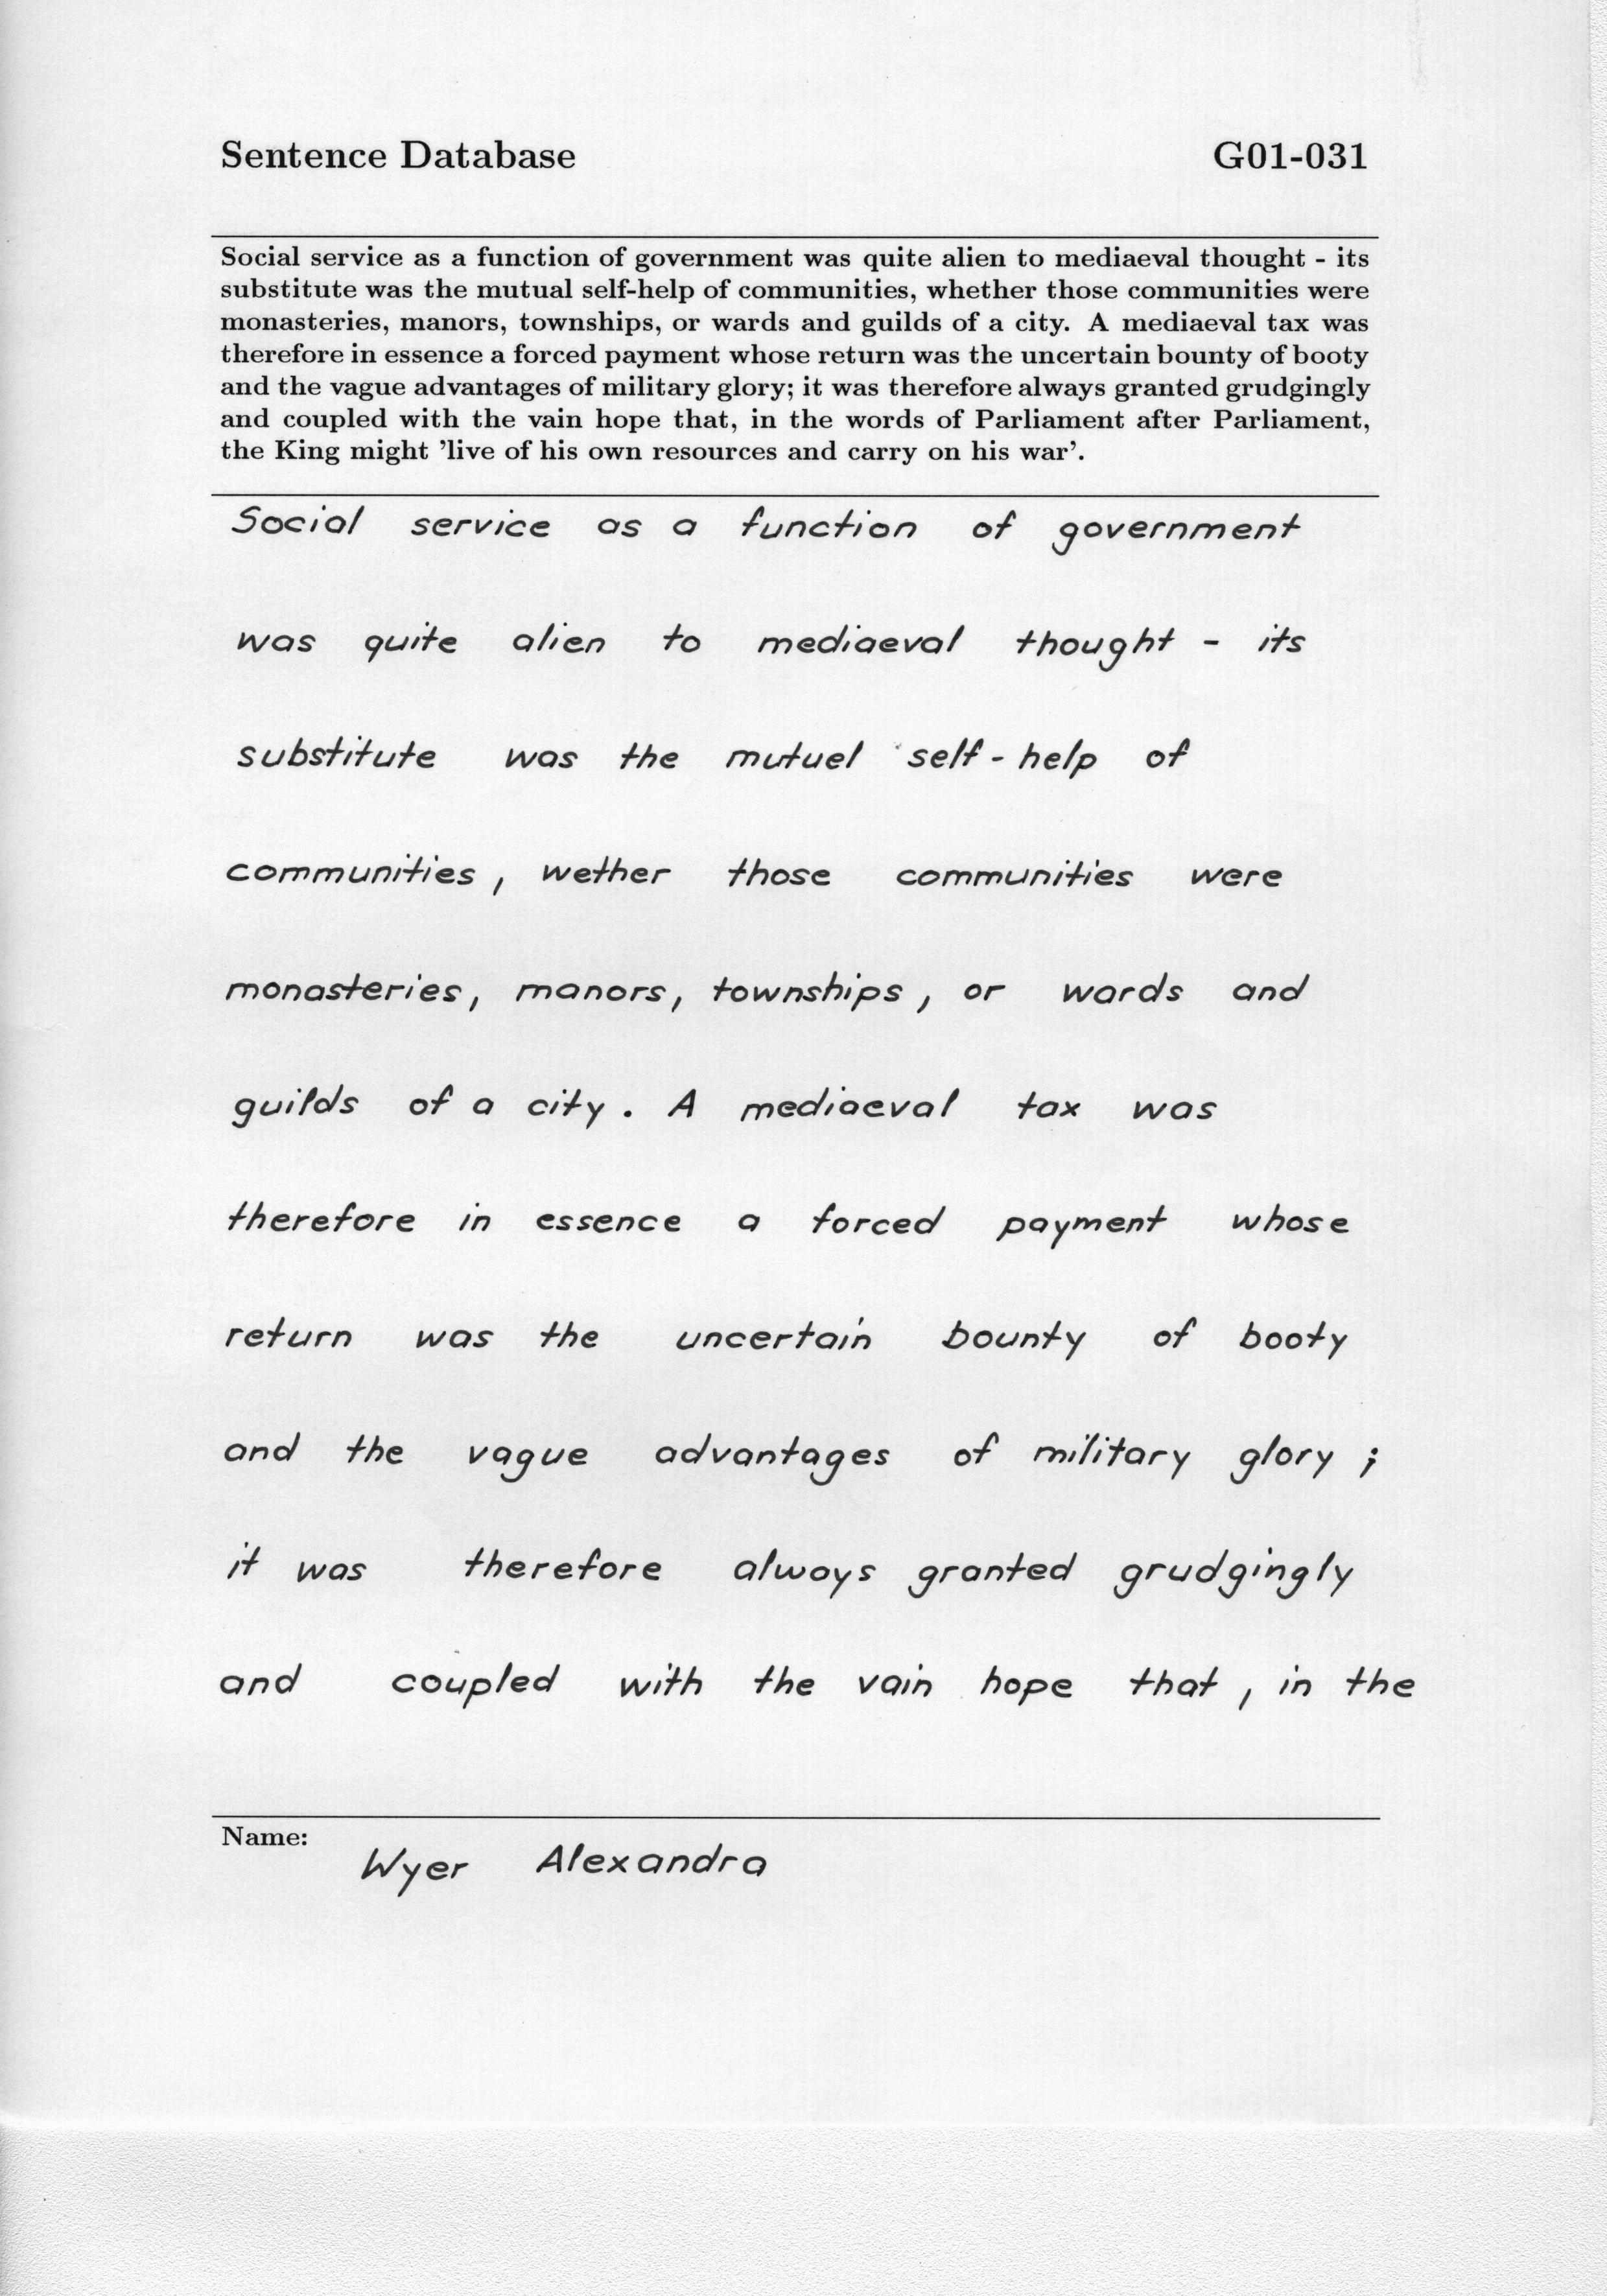 Sentence Database G01-031
Social service as a function of government was quite alien to mediaeval thought - its
substitute was the mutual self-help of communities, whether those communities were
monasteries, manors, townships, or wards and guilds of a city. A mediaeval tax was
therefore in essence a forced payment whose return was the uncertain bounty of booty
and the vague advantages of military glory; it was therefore always granted grudgingly
and coupled with the vain hope that, in the words of Parliament after Parliament,
the King might 'live of his own resources and carry on his war'.
Social service as a function of government
was quite alien to mediaeval thought - its
substitute was the mutuel self-help of
communities, wether those communities were
monasteries, manors, townships, or wards and
guilds of a city. A mediaeval tax was
therefore in essence a forced payment whose
return was the uncertain bounty of booty
and the vague advantages of military glory;
it was therefore always granted grudgingly
and coupled with the vain hope that, in the
Name:
Wyer Alexandra